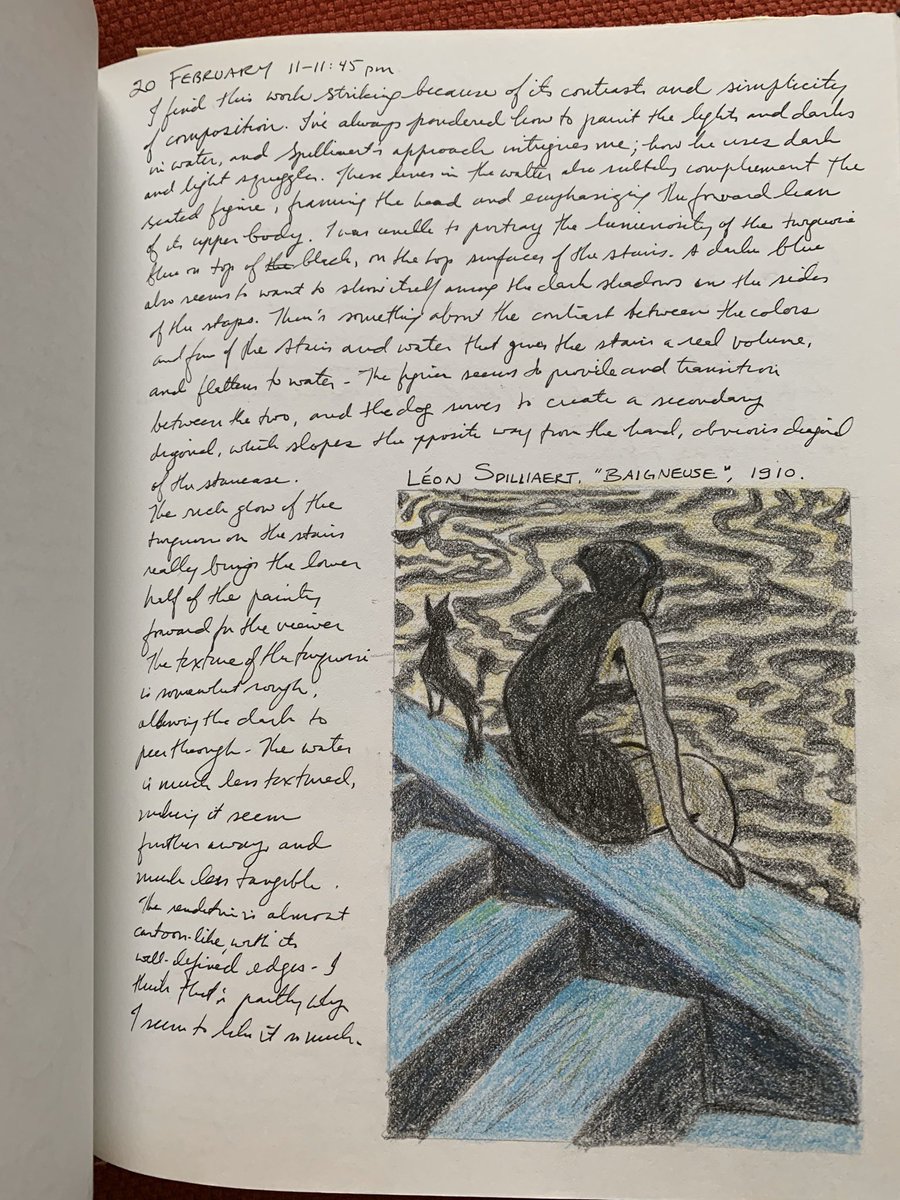 20 FEBRUARY 11–11:45 pm
I find this work striking because of its contrasts and simplicity
of composition. I've always pondered how to paint the lights and darks
in water, and Spilliaert's approach intrigues me; how he uses dark
and light squiggles. These lines in the water also subtly complement the
seated figure, framing the head and emphasizing the forward lean
of its upper body. I was unable to portray the luminosity of the turquoise
blue on top of the black, on the top surfaces of the stairs. A darker blue
also seems to want to show itself among the dark shadows on the sides
of the steps. There's something about the contrast between the colors
and form of the stairs and water that gives the stairs a real volume,
and flattens the water – The figure seems to provide and transition
between the two, and the dog serves to create a secondary
diagonal, which slopes the opposite way from the hard, obvious diagonal
of the staircase.
The rich glow of the
turquoise on the stairs
really brings the lower
half of the painting
forward for the viewer
The texture of the turquoise
is somewhat rough,
allowing the dark to
peer through – The water
is much less textured,
making it seem
further away, and
much less tangible.
The rendition is almost
cartoon-like, with its
well-defined edges – I
think that's partly why
I seem to like it so much.
LÉON SPILLIAERT, "BAIGNEUSE", 1910.